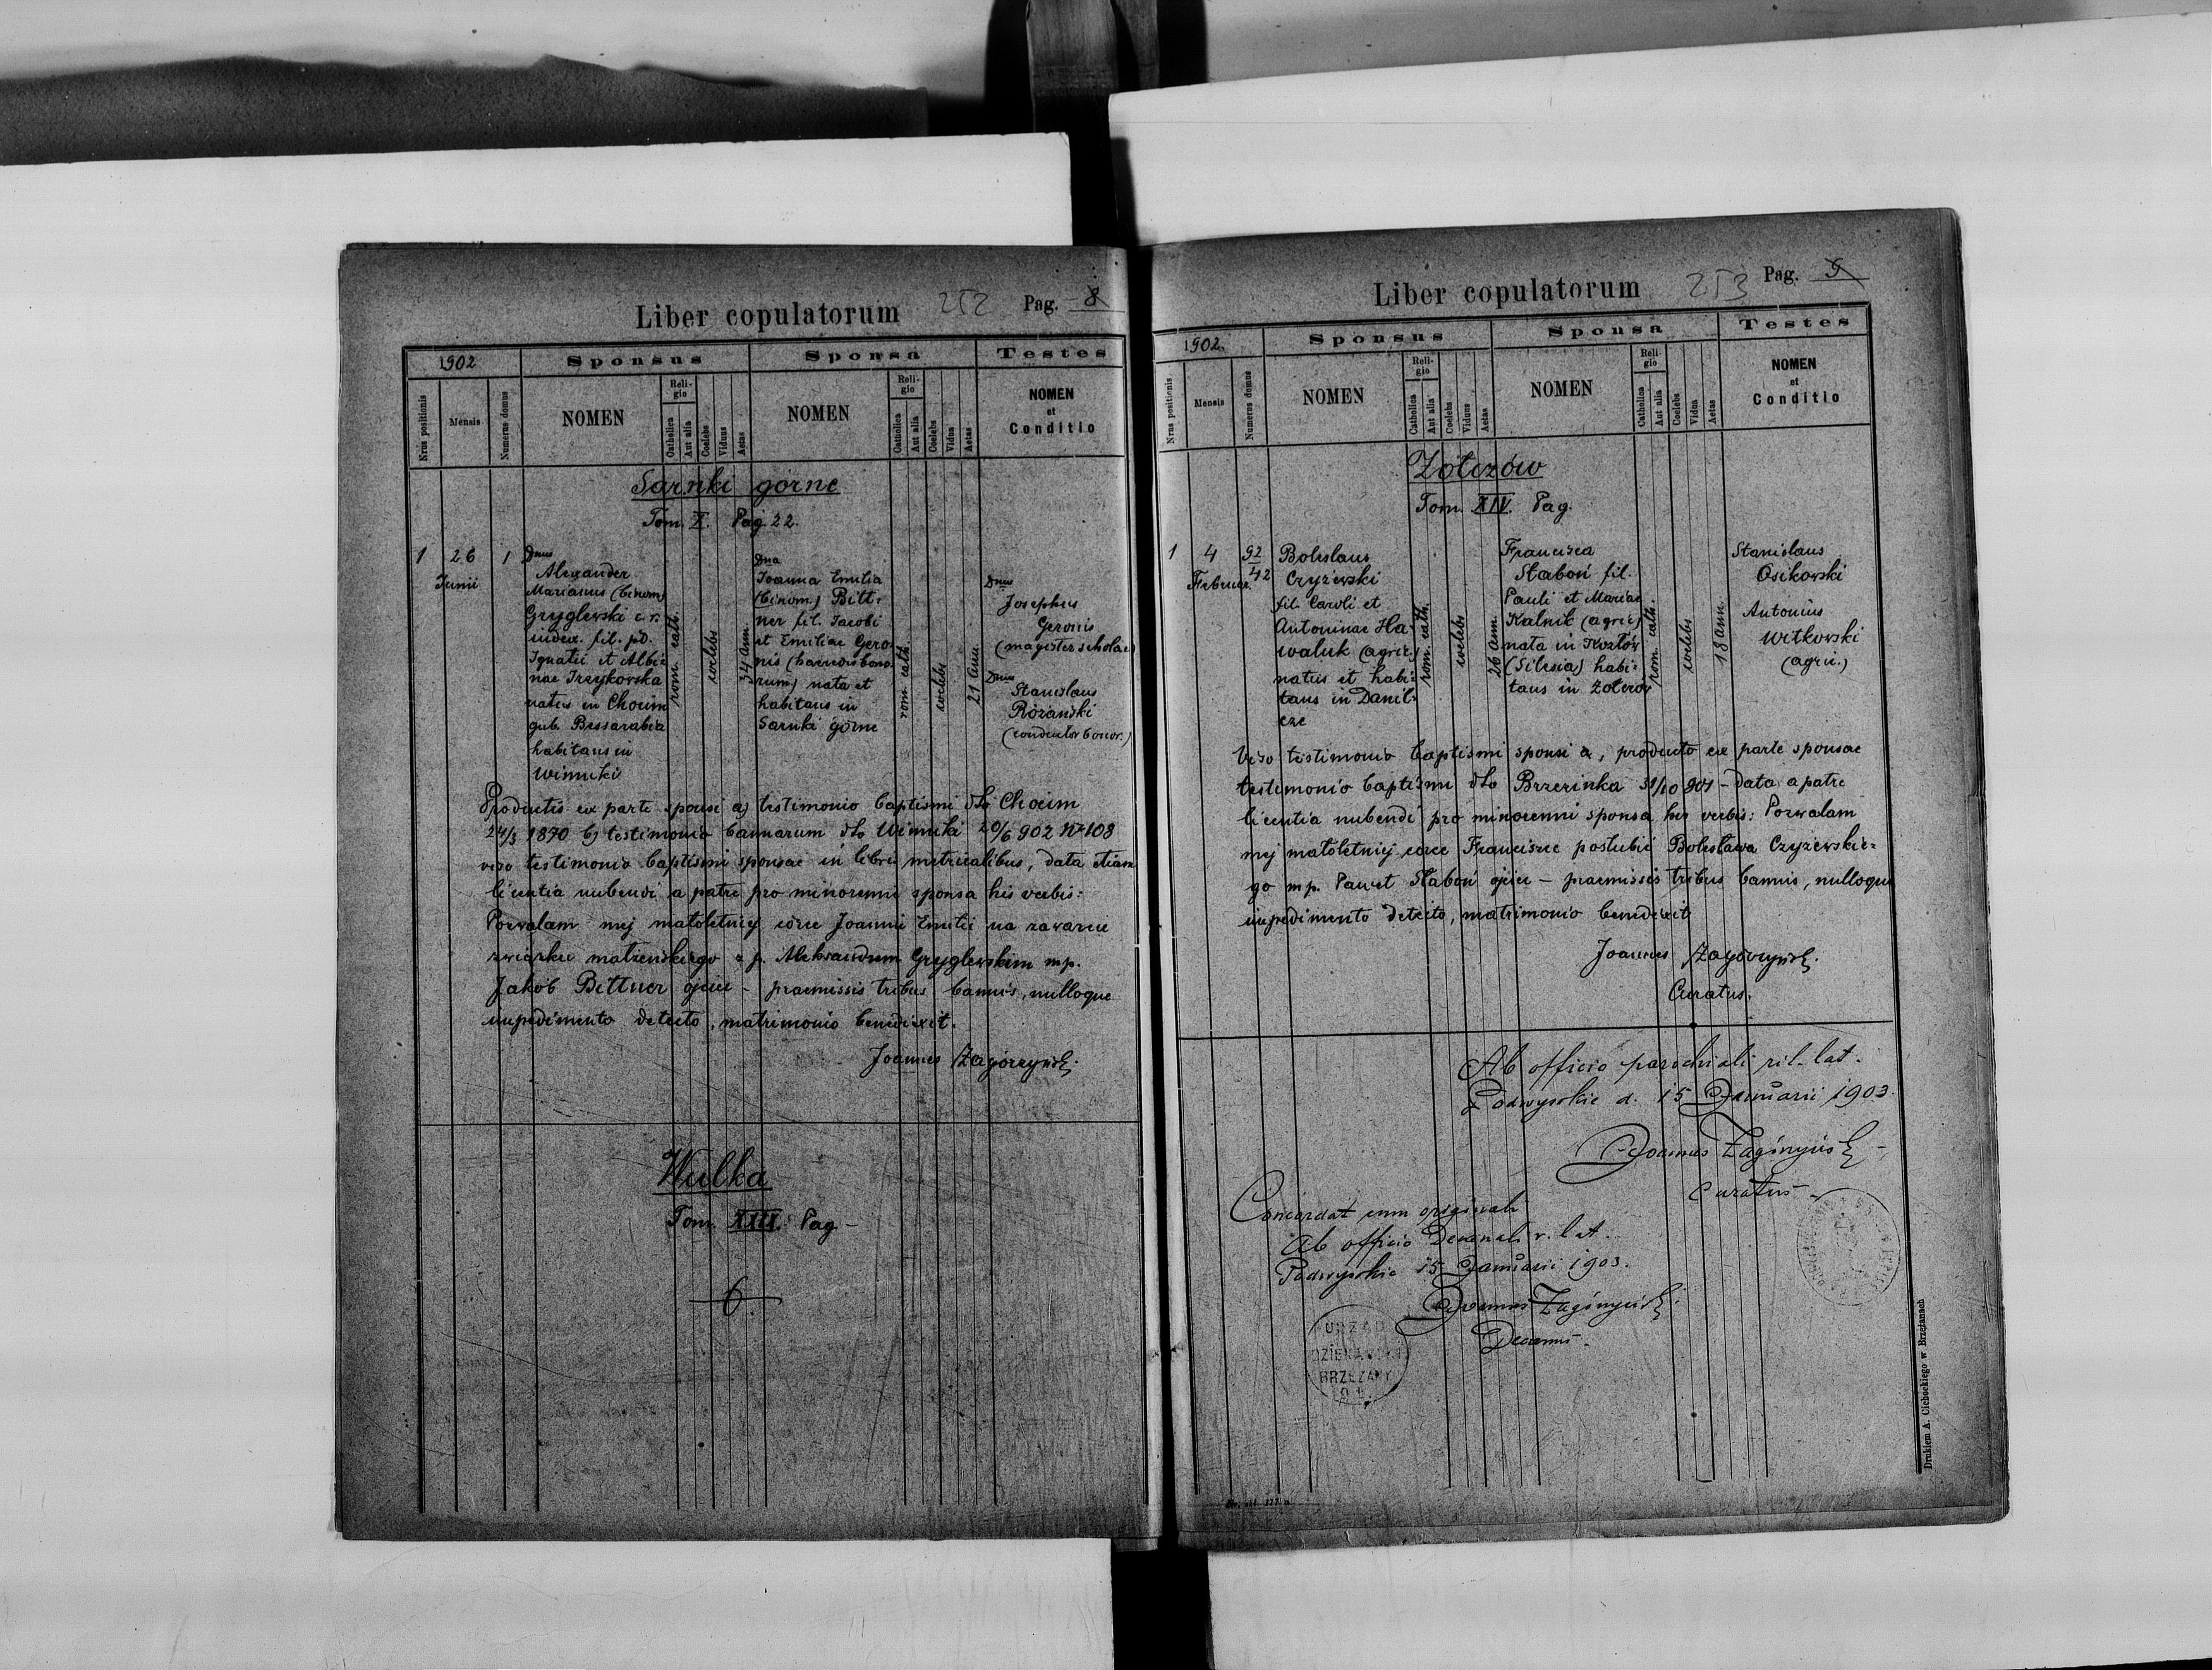 Liber copulatorum 252 Pag. 8
1902 Sponsus Sponsa Testes
Nrus positionis Mensis Numerus domus NOMEN Religio Catholica Aut alia Coelebs Viduus Aetas NOMEN Religio Catholica Aut alia Coelebs Vidua Aetas NOMEN et Conditio
Sarnki górne
Tom. X. Pag. 22.
1
26
Junii
1
Dnus
Alexander
Marianus (binom)
Gryglewski c. r.
iudex. fil. pd.
Ignatii et Albi=
nae Trzykowska
natus in Chocim
gub. Bessarabia
habitans in
Winniki
rom. cath.
coelebs
34 ann.
Dna
Joanna Emilia
(binom.) Bitt=
ner fil. Jacobi
et Emiliae Gero=
nis (haeredis bono=
rum) nata et
habitans in
Sarnki górne
rom. cath.
coelebs
21 ann.
Dnus
Josephus
Geronis
(magister scholae)
Dnus
Stanislaus
Różański
(conductor bonor.)
Productis ex parte sponsi a) testimonio baptismi dto Chocim
24/3 1870 b) testimonio bannorum dto Winniki 20/6 902 N 108
viso testimonio baptismi sponsae in libris metricalibus, data etiam
licentia nubendi a patre pro minorenni sponsa his verbis:
Pozwalam mej małoletniej córce Joannie Emilii na zawarcie
związku małżeńskiego z p. Aleksandrem Gryglewskim mp.
Jakób Bittner ojciec – praemissis tribus bannis, nulloque
impedimento detecto, matrimonio benedixit.
Joannes Zagórzyński
Wulka
Tom. XIII. Pag –
Liber copulatorum 253 Pag. 9
1902. Sponsus Sponsa Testes
Nrus positionis Mensis Numerus domus NOMEN Religio Catholica Aut alia Coelebs Viduus Aetas NOMEN Religio Catholica Aut alia Coelebs Vidua Aetas NOMEN et Conditio
Żołczów
Tom. XIV. Pag.
1
4
Februar.
92
42
Boleslaus
Czyżewski
fil. Caroli et
Antoninae Ha=
waluk (agric.)
natus et habi=
tans in Danil=
cze
rom. cath.
coelebs
26 ann.
Francisca
Słaboń fil.
Pauli et Mariae
Kalnik (agric.)
nata in Kozłów
(Silesia) habi=
tans in Żołczów
rom. cath.
coelebs
18 ann.
Stanislaus
Osikowski
Antonius
Witkowski
(agric.)
Viso testimonio baptismi sponsi a, producto ex parte sponsae
testimonio baptismi dto Brzezinka 31/10 901 – data a patre
licentia nubendi pro minorenni sponsa his verbis: Pozwalam
mej małoletniej córce Franciszce poślubić Bolesława Czyżewskie=
go mp. Paweł Słaboń ojciec – praemissis tribus bannis, nulloque
impedimento detecto, matrimonio benedixit
Joannes Zagórzyński
Curatus.
Ab officio parochiali rit. lat.
Podwysokie d. 15 Januarii 1903
Joannes Zagórzyński
Curatus
Concordat cum originali
Ab officio Decanali r. lat.
Podwysokie 15 Januarii 1903.
Joannes Zagórzyński
Decanus.
URZĄD
DZIEKAŃSKI
BRZEŻANY
O. Ł.
Drukiem A. Ciehockiego w Brzeżanach